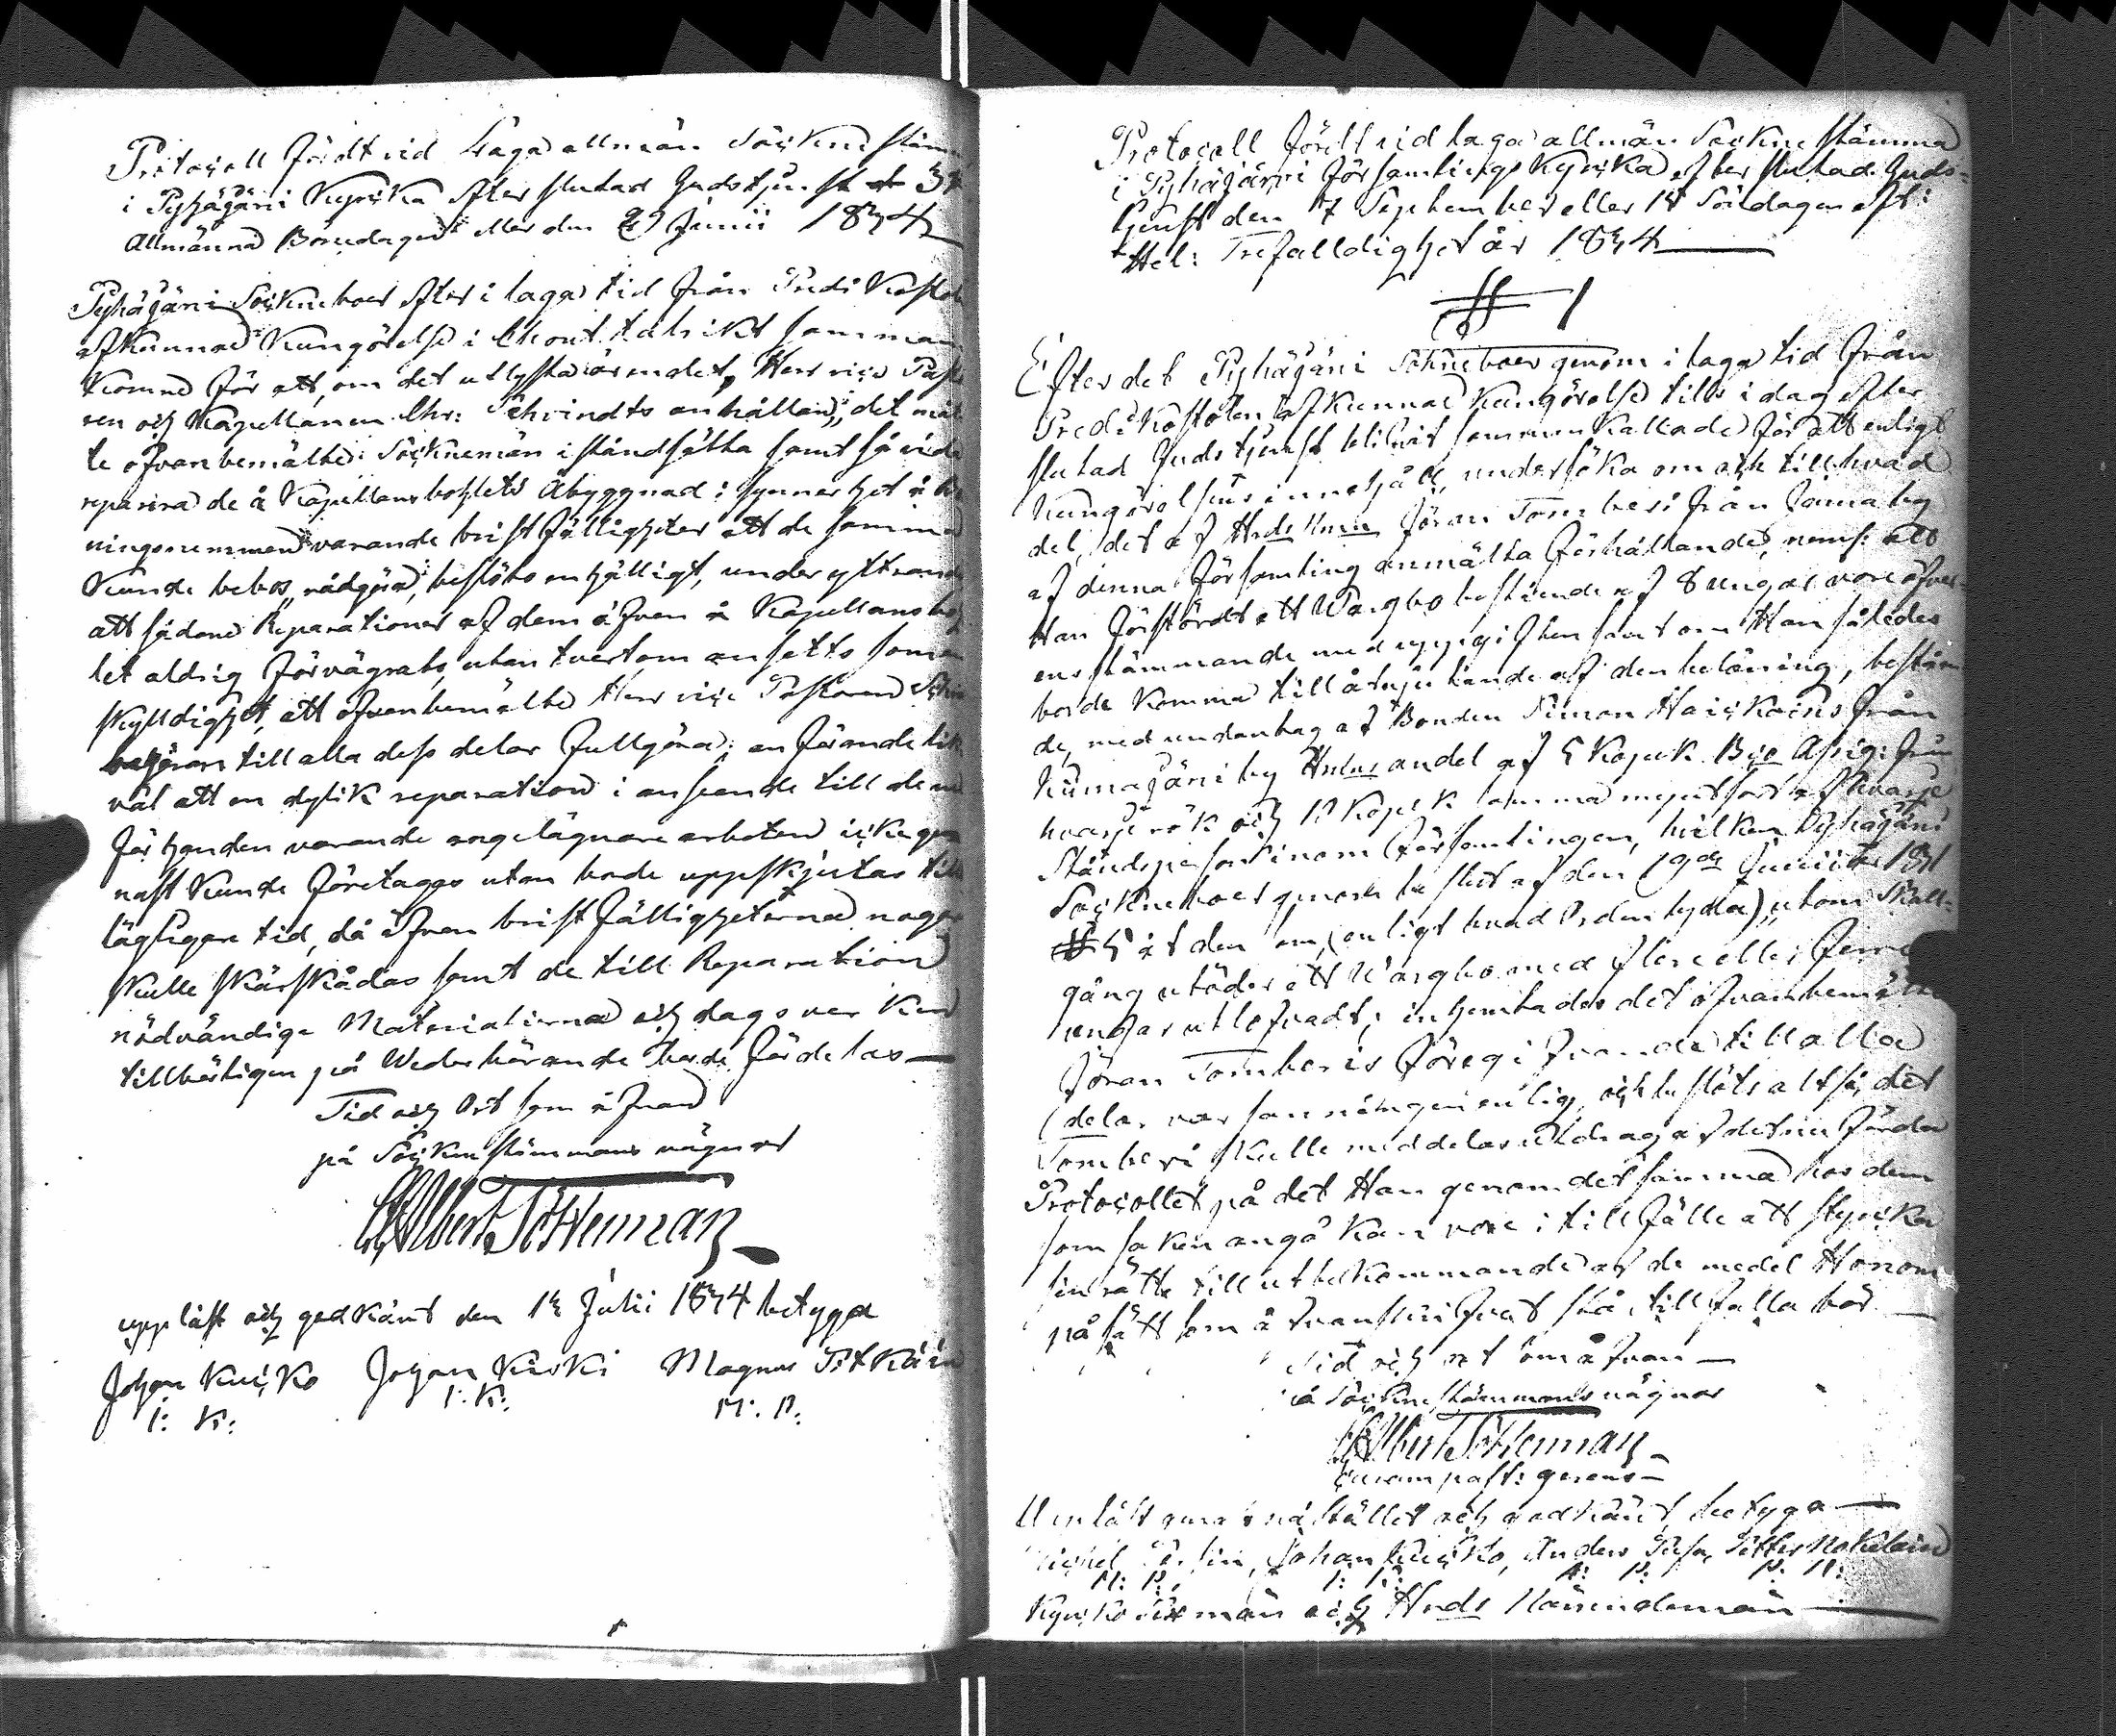 Protocoll fördt vid Laga allmän Sockne stäm
i Pyhäjärvi Kyrcka efter slutad Gudstjenst 3:
Allmänna Bönedagen eller den 29 Junii 1834
Pyhäjärvi Sockneboer efter i laga tid från Predikostol
afkunnad Kungörelse i talrikt samman
komne för att, om det utlysta ärendet, Herr vice Pasto
ren och Kapellanen Chr: Schvindts anhållan, det måt
te ofvanbemälte Socknemän iståndsätta samt så vida
reparera de å Kapellansbohlets Åbyggnad: synnerhet å
ningsrummen varande bristfälligheter att de samma
kunde bebos, rådgöra, beslöts enhälligt, under yttrande
att sådane Reparationer af dem äfven å Kapellansboh
let aldrig förvägrats, utan tvertom ansetts som en
skylldighet, att ofvanbemälte Herr vice Pastoren
begäran till alla dess delar fullgöra; anförande lik
väl att en dylik reparation i anseende till de nu
för handen varande angelägnare arbeten icke gen
nast kunde företaggs utan borde uppskjutas till
lägligare tid, då äfven bristfälligheterna noga
skulle skärskådas samt de till Reparation
nödvändiga Materialierna och dagsverken
tillbörligen på Wederbörande borde fördelas —
Tid och Ort som åfvan
på Sockenstämmans vägnar
Albert Söderman
uppläst och godkänt den 13 Julii 1834 betyga
Johan Kuicko Johan Kiiski Magnus Pitkäin
I: K: I: K: M: P:
Protocoll fördt vid laga allmän Sockne stämma
i Pyhäjärvi församlings Kyrcka efter slutad Guds-
tjenst den 7 September eller 14 Söndagen eft:
Hel: Trefalldighet år 1834
§ 1
Efter det Pyhäjärvi Sockneboer genom i laga tid från
Predikostolen afkunnad kungörelse tills i dag efter
slutad Gudstjenst blifvit sammankallade för att enligt
Kungörelsens innehåll, undersöka om och till hvad
del, det af Göran Tomberi från by
af denna församling anmälta förhållande, neml: att
Han förstördt ett Wargbo bestående af 8 ungar vore öfver-
ensstämmande med uppgiften samt om Han således
borde komma till åtnjutande af den belöning, beståen
de, med undantag af Bonden Simon från
by andel af 5 Kopek Bco Assig: från
hvarje rök och 12 Kopek samma mynt af hvarje
Ståndsperson inom församlingen, hvilken Pyhäjärvi
Sockneboer genom beslut af den 19de Junii 1831
§ 5 åt den om, (enligt hvad Orden lyda), utom Skall-
gång utöder ett Wargbo med flere eller
ungar utlofvadt; inhemtades det ofvanbemälte
Göran Tomberis föregifvande till alla
delar var sanningsenlig, och beslöts altså, det
Tomberi skulle meddelas utdrag af det nu förda
Protocollet på det Han genom det samma hos dem
som saken angå kan vore i tillfälle att styrcka
sin rätt till utbekommande af de medel Honom
på sätt som åfvanskrifvet stå, tillfalla bör —
Tid och ort som åfvan —
på Sockne stämmans vägnar
Albert Söderman
curam past: gerens
Uppläst genast på stället och godkänt betyga —
Michel, Johan Kuicko, Anders, Petter
M: P: I: K: A: P: P: N:
Kyrcko Sexmän och Nämndemän —